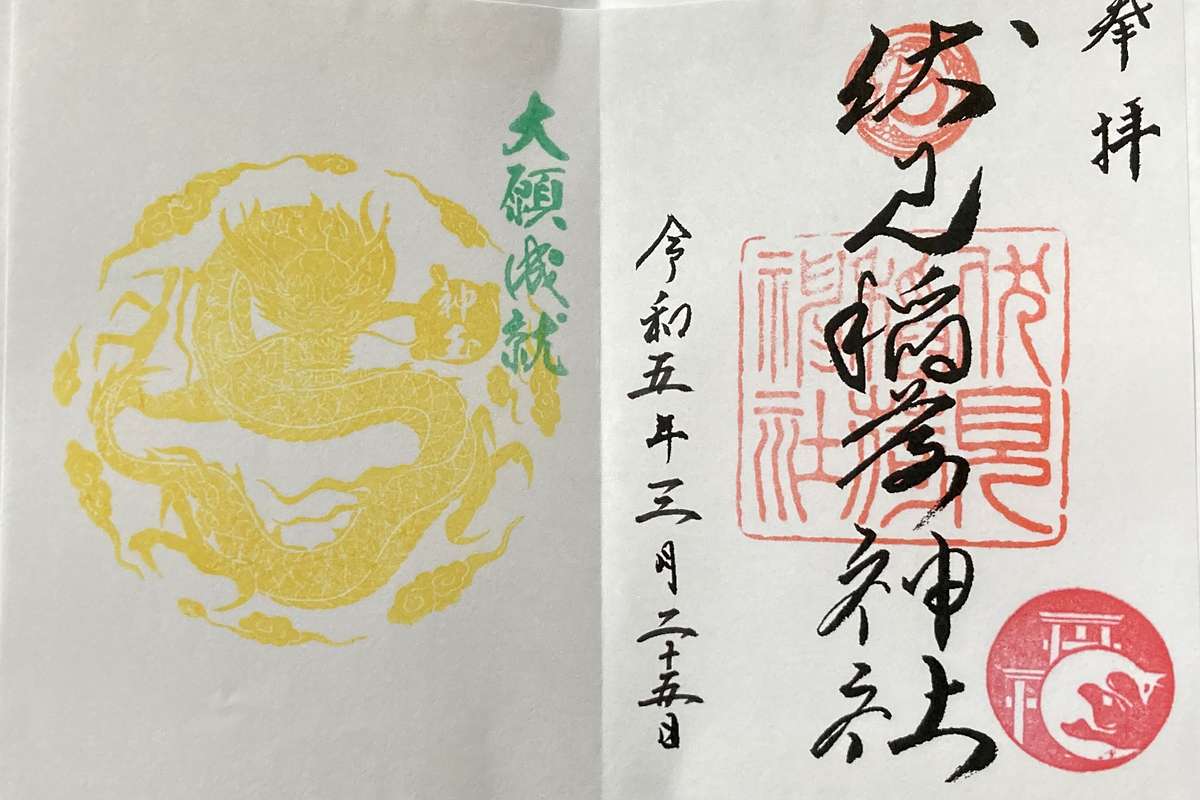 奉拝
伏見稲荷神社
伏見
稲荷
神社
令和五年三月二十五日
大願成就
神玉